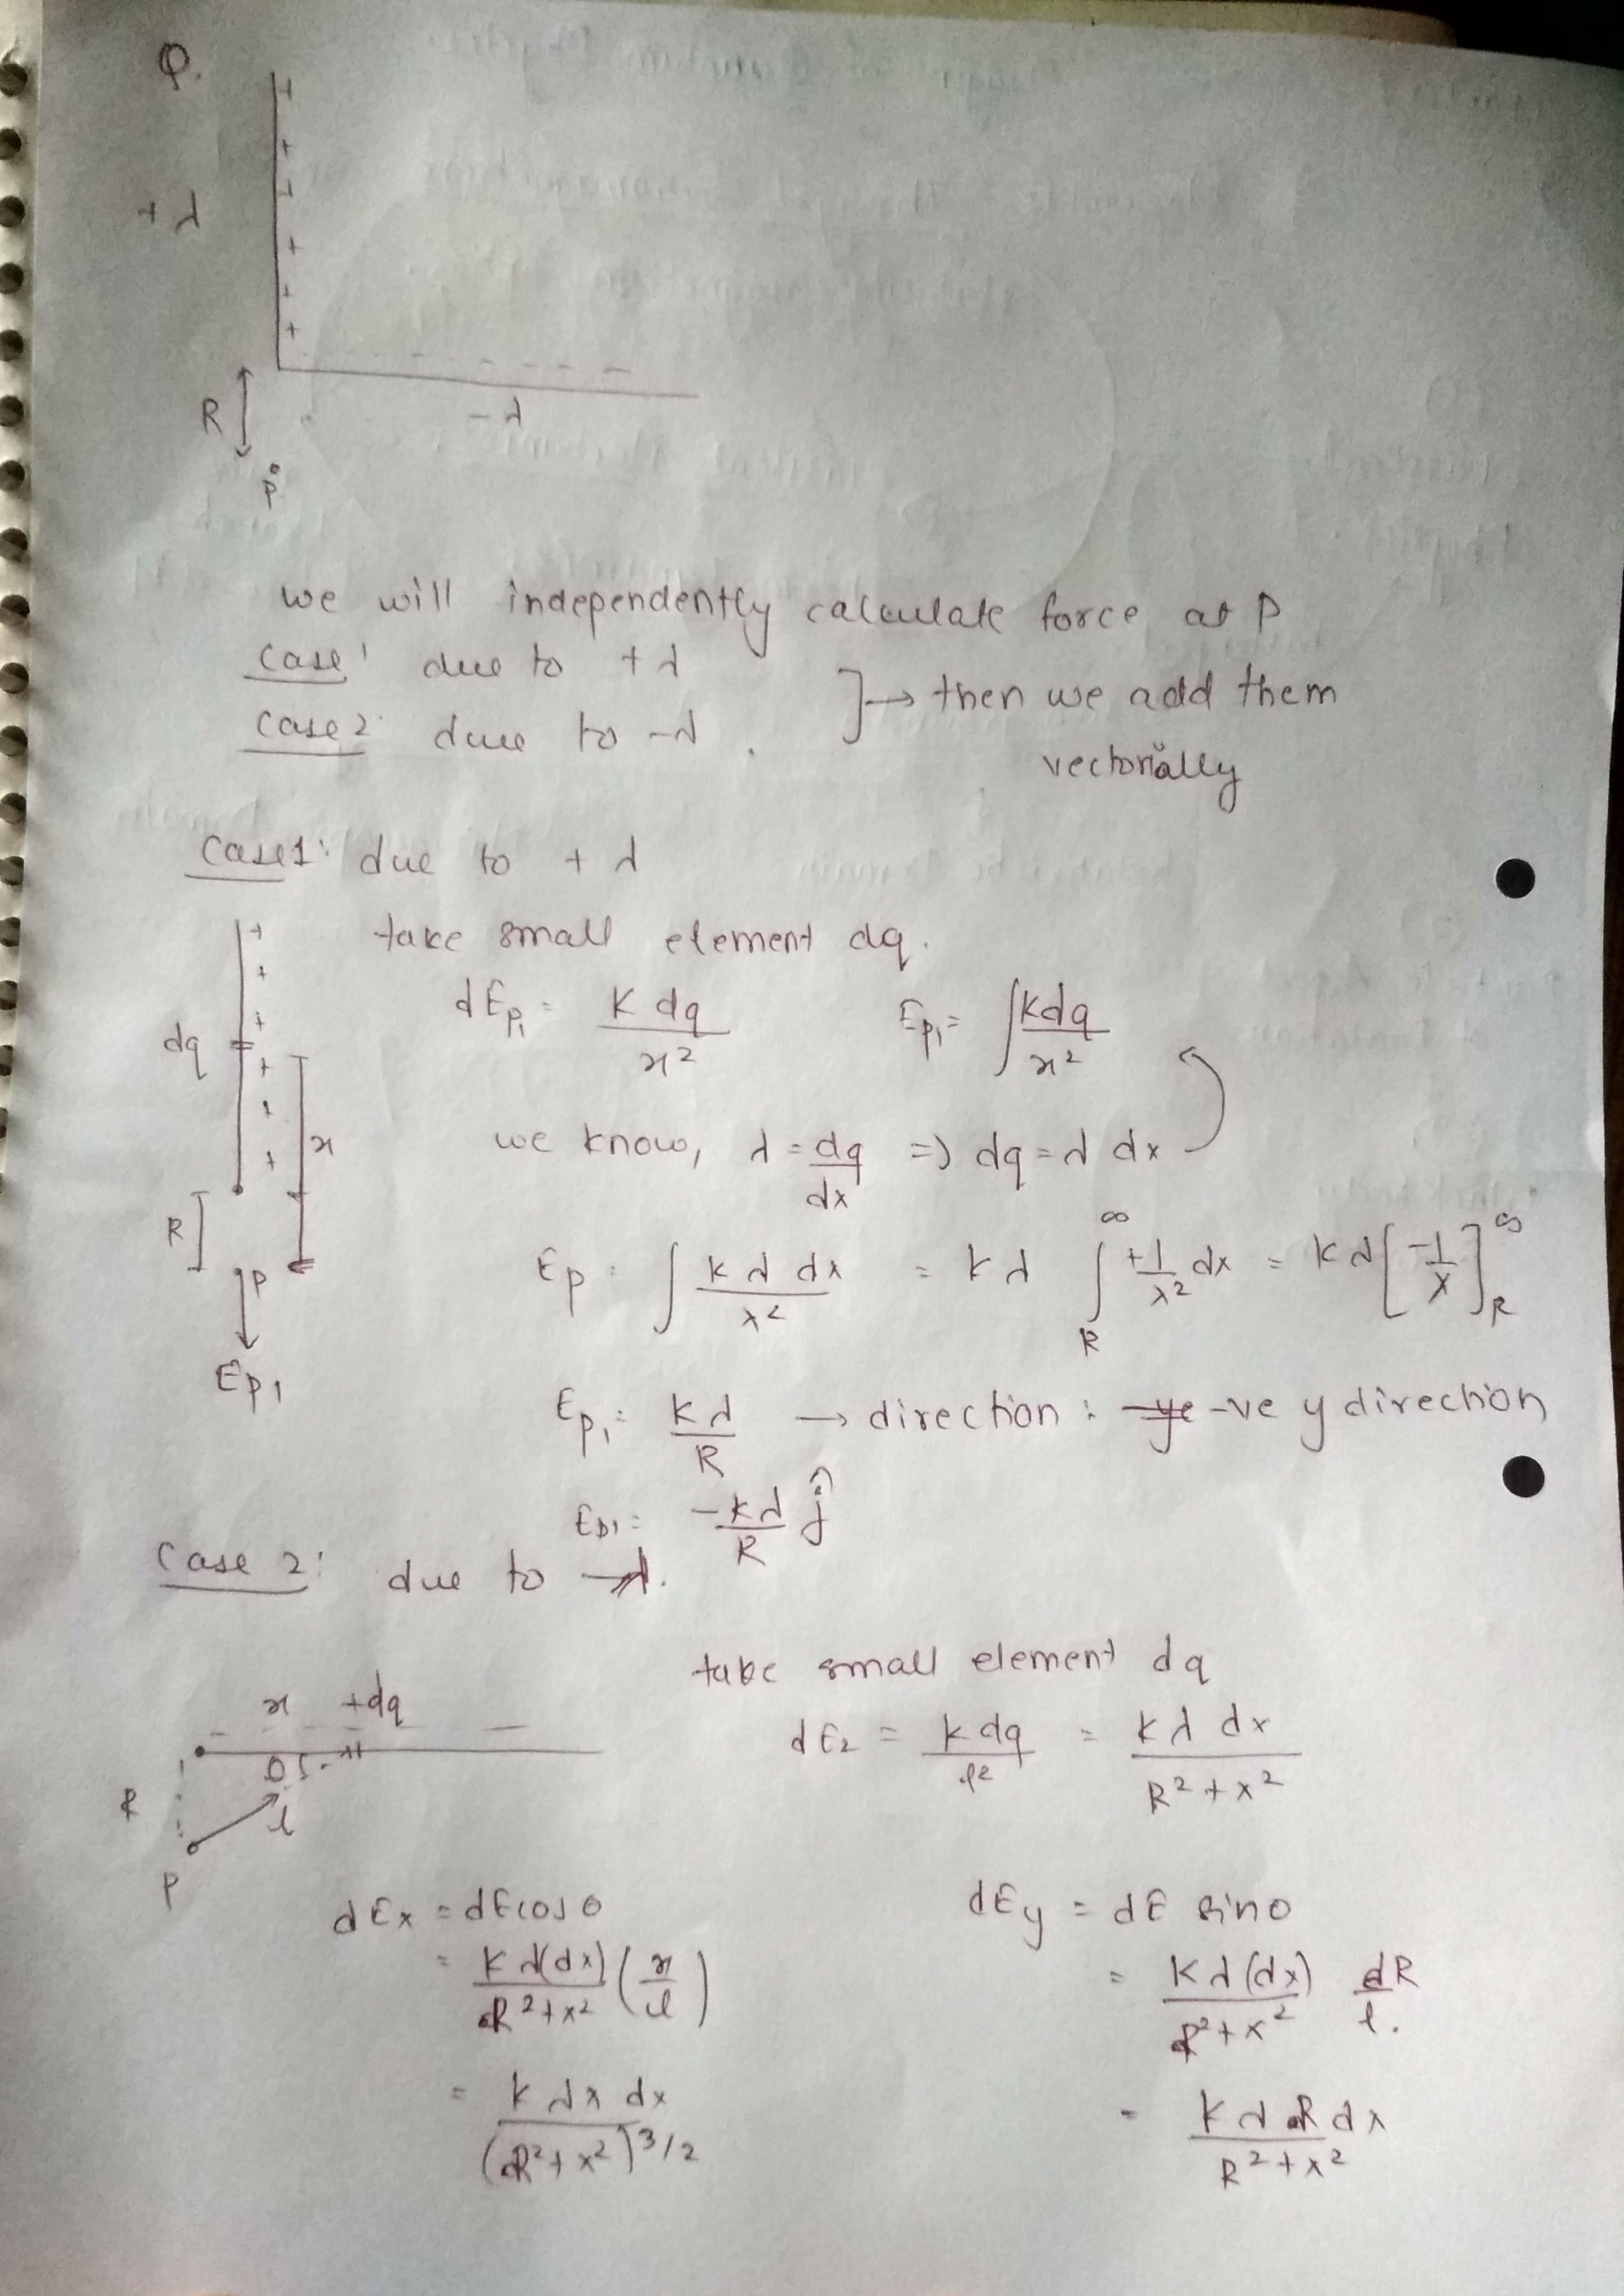 Q.
+ λ
R
- λ
P
we will independently calculate force at P
case 1 due to +λ
case 2: due to -λ . ]→ then we add them
vectorially
case 1: due to + λ
take small element dq.
dEp1 = K dq / x² Ep1 = ∫ K dq / x²
dq
x
we know, λ = dq / dx ⇒ dq = λ dx
R
P
Ep1
Ep = ∫ K λ dx / x² = K λ ∫_R^∞ +1/x² dx = K λ [-1/x]_R^∞
Ep1 = Kλ / R → direction : -ve y direction
Ep1 = -Kλ / R ĵ
case 2: due to -λ.
take small element dq
x +dq
θ
R
l
P
dE2 = K dq / l² = K λ dx / R² + x²
dEx = dE cos θ dEy = dE sin θ
= K λ(dx) / R² + x² (x / l) = K λ (dx) / R² + x² R / l.
= K λ x dx / (R² + x²)^3/2 = K λ R dx / R² + x²